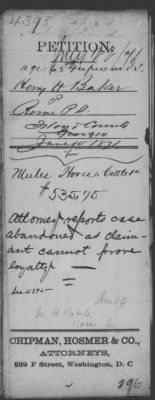 4395
PETITION,
Henry H Baker
of
Rome P.O.
Floyd County
Georgia
June 10 1871
for
Mules Horse & Cattle &c
$535,75
Attorney reports case
abandoned as claim-
ant cannot prove
loyalty.
CHIPMAN, HOSMER & CO.,
ATTORNEYS,
632 F Street, Washington, D. C
296